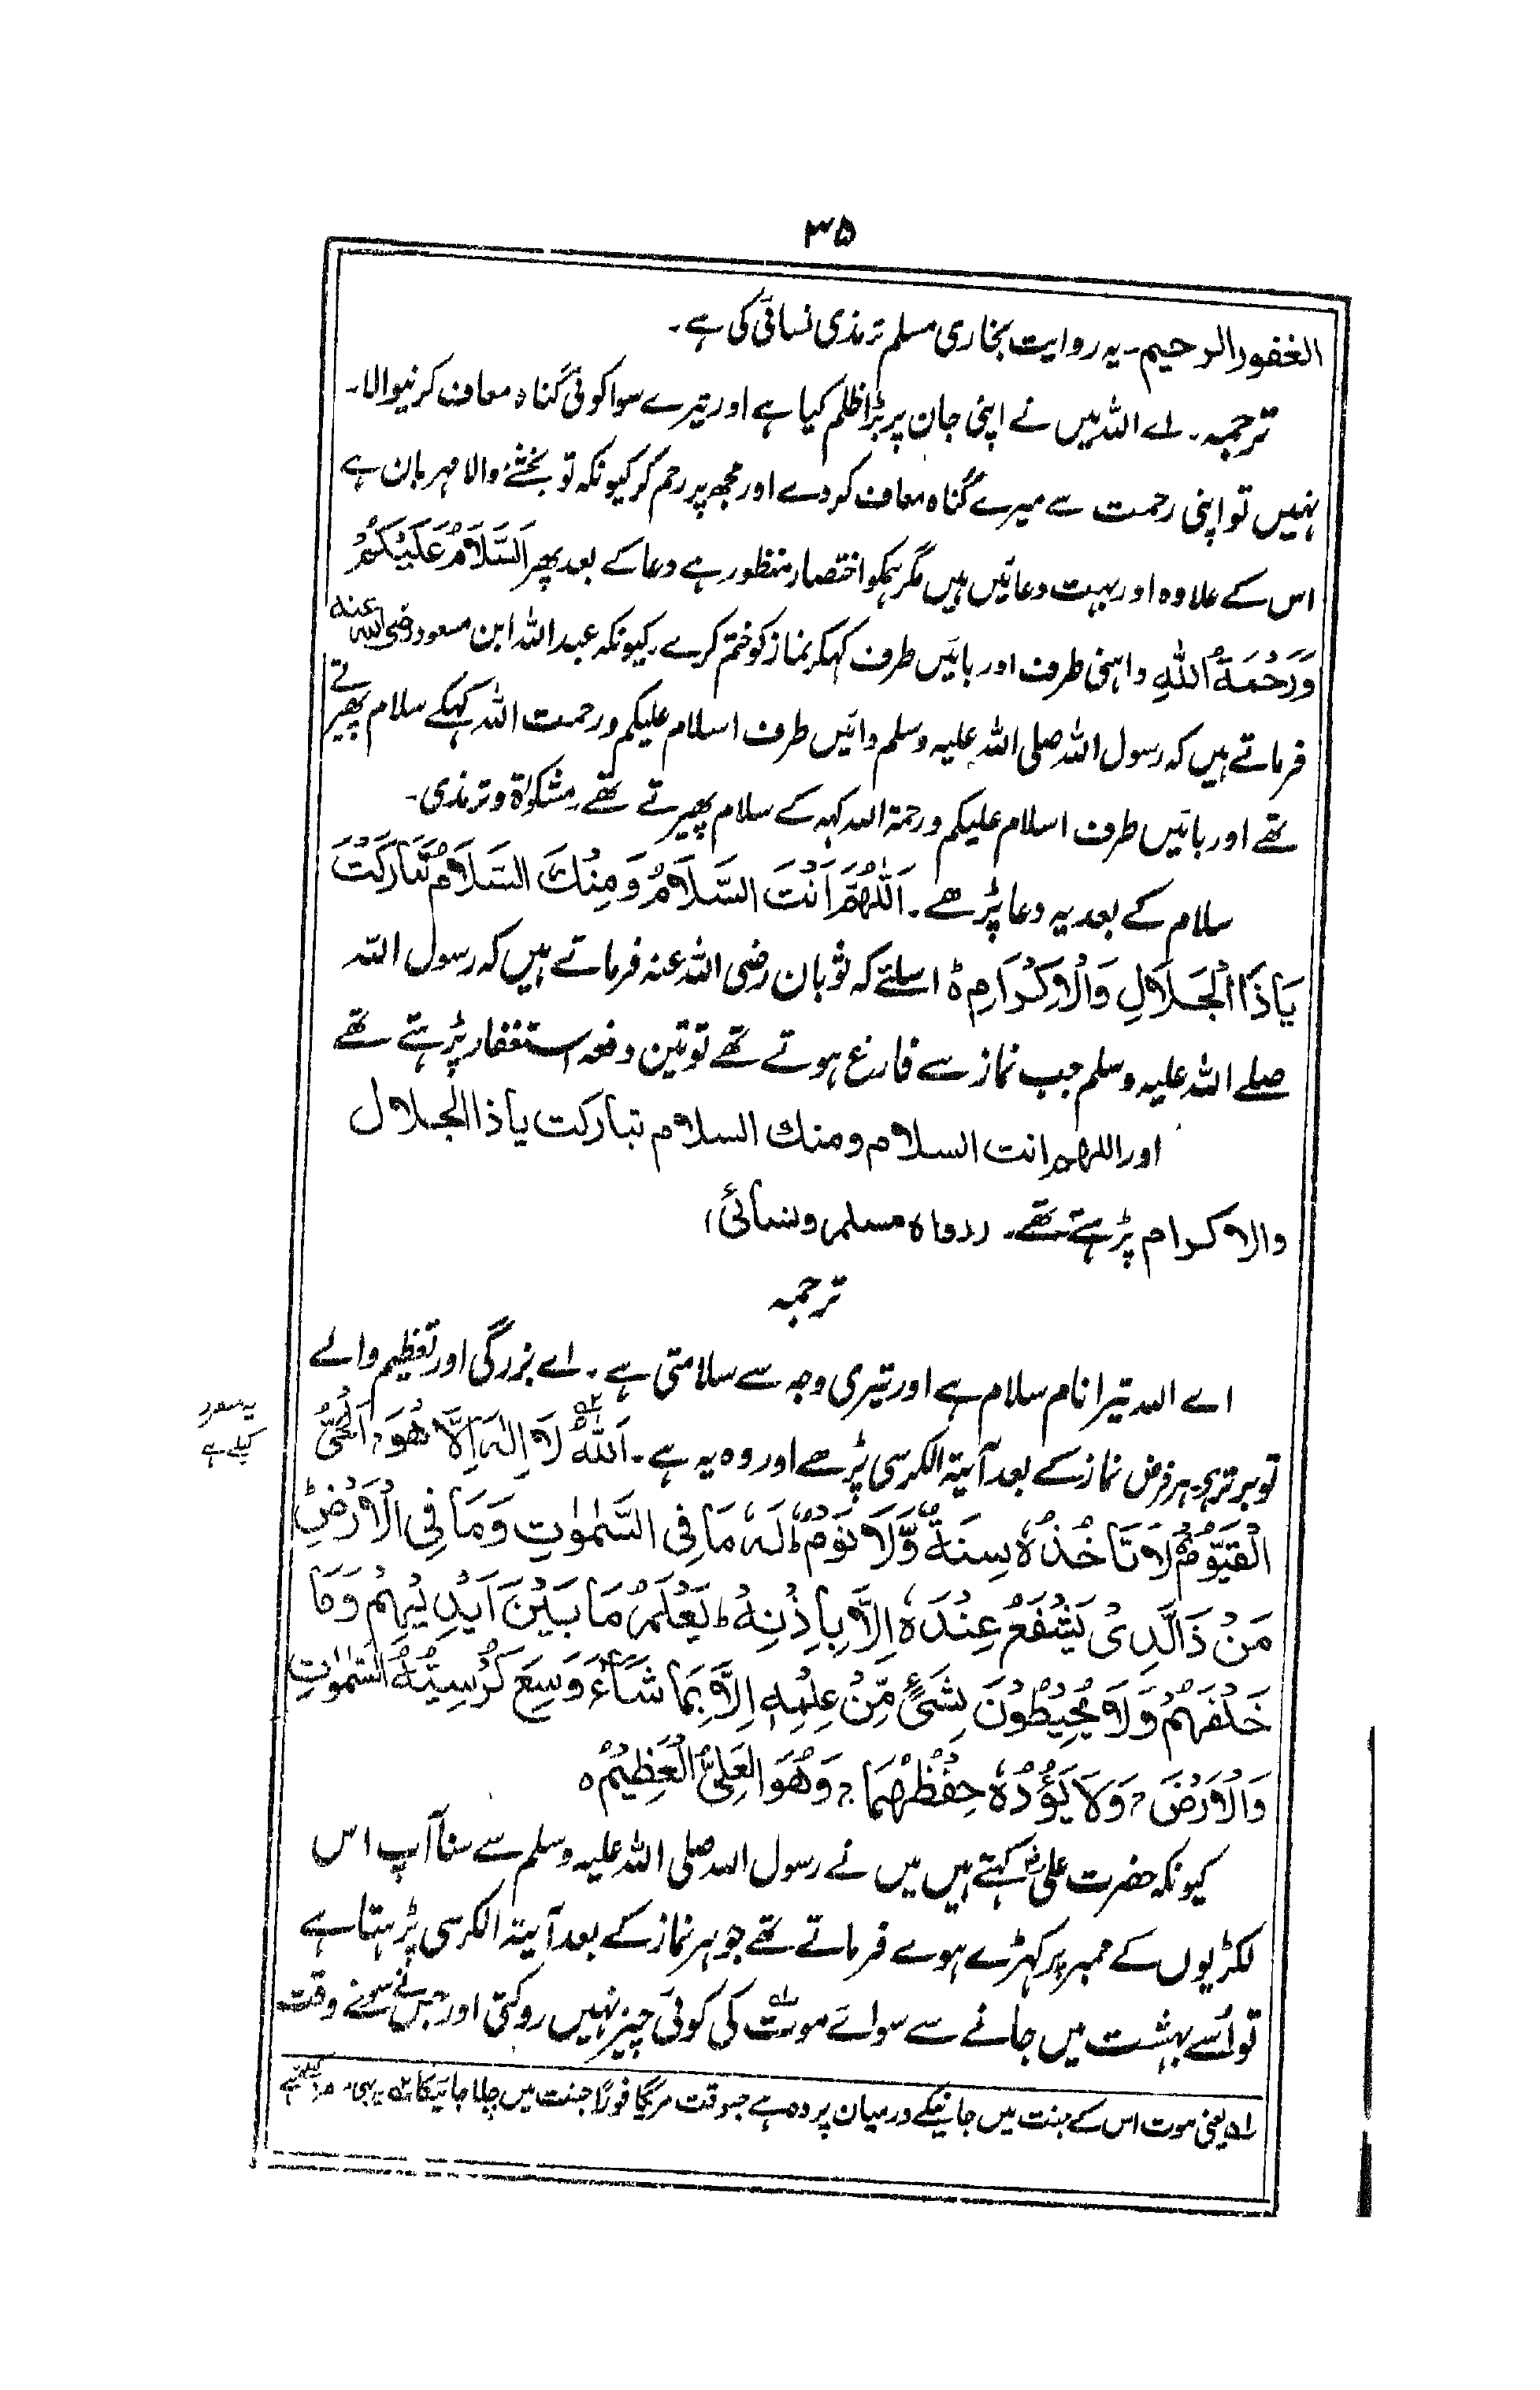 ۳۵
الغفورالرحیم۔ یہ روایت بخاری مسلم ترمذی نسائی کی ہے۔
ترجمہ۔ اے اللہ میں نے اپنی جان پر بڑا ظلم کیا ہے اور تیرے سوا کوئی گناہ معاف کرنیوالا۔
نہیں تو اپنی رحمت سے میرے گناہ معاف کر دے اور مجھ پر رحم کر کیونکہ تو بخشنے والا مہربان ہے
اس کے علاوہ اور بہت دعائیں ہیں مگر ہمکو اختصار منظور ہے دعا کے بعد پھر اَلسَّلَامُ عَلَیْکُمْ
وَرَحْمَۃُ اللّٰہِ داہنی طرف اور بائیں طرف کہکر نماز کو ختم کرے۔ کیونکہ عبداللہ ابن مسعود رضی اللہ عنہ
فرماتے ہیں کہ رسول اللہ صلی اللہ علیہ وسلم دائیں طرف اسلام علیکم ورحمت اللہ کہکے سلام پھیرتے
تھے اور بائیں طرف اسلام علیکم ورحمۃ اللہ کہہ کے سلام پھیرتے تھے مشکوٰۃ وترمذی۔
سلام کے بعد یہ دعا پڑھے۔ اَللّٰھُمَّ اَنْتَ السَّلَامُ وَمِنْکَ السَّلَامُ تَبَارَکْتَ
یَاذَا الْجَلَالِ وَالْاِکْرَامِ ہ اسلئے کہ ثوبان رضی اللہ عنہ فرماتے ہیں کہ رسول اللہ
صلے اللہ علیہ وسلم جب نماز سے فارغ ہوتے تھے تو تین دفعہ استغفار پڑہتے تھے
اور اللھم انت السلام ومنک السلام تبارکت یاذا الجلال
والاکرام پڑہتے تھے۔ (رواہ مسلم ونسائی)
ترجمہ
اے اللہ تیرا نام سلام ہے اور تیری وجہ سے سلامتی ہے۔ اے بزرگی اور تعظیم والے
تو برتر ہے۔ ہر فرض نماز کے بعد آیۃ الکرسی پڑھے اور وہ یہ ہے۔ اَللّٰہُ لَا اِلٰہَ اِلَّا ھُوَ۔ اَلْحَیُّ
الْقَیُّوْمُ لَا تَاْخُذُہٗ سِنَۃٌ وَّلَا نَوْمٌ ط لَہٗ مَا فِی السَّمٰوٰتِ وَمَا فِی الْاَرْضِ ط
مَنْ ذَا الَّذِیْ یَشْفَعُ عِنْدَہٗ اِلَّا بِاِذْنِہٖ ط یَعْلَمُ مَا بَیْنَ اَیْدِیْہِمْ وَمَا
خَلْفَہُمْ وَلَا یُحِیْطُوْنَ بِشَیْئٍ مِّنْ عِلْمِہٖ اِلَّا بِمَا شَآءَ وَسِعَ کُرْسِیُّہُ السَّمٰوٰتِ
وَالْاَرْضَ ج وَلَا یَؤُدُہٗ حِفْظُھُمَا ج وَھُوَ الْعَلِیُّ الْعَظِیْمُ ہ
کیونکہ حضرت علیؓ کہتے ہیں میں نے رسول اللہ صلی اللہ علیہ وسلم سے سنا آپ اس
لکڑیوں کے ممبر پر کہڑے ہوے فرماتے تھے جو ہر نماز کے بعد آیۃ الکرسی پڑہتا ہے
تو اُسے بہشت میں جانے سے سوائے موت کی کوئی چیز نہیں روکتی اور جس نے سونے وقت
لہ یعنی موت اس کے جنت میں جانیکے درمیان پردہ ہے جسوقت مریگا فوراً جنت میں چلا جائیگا